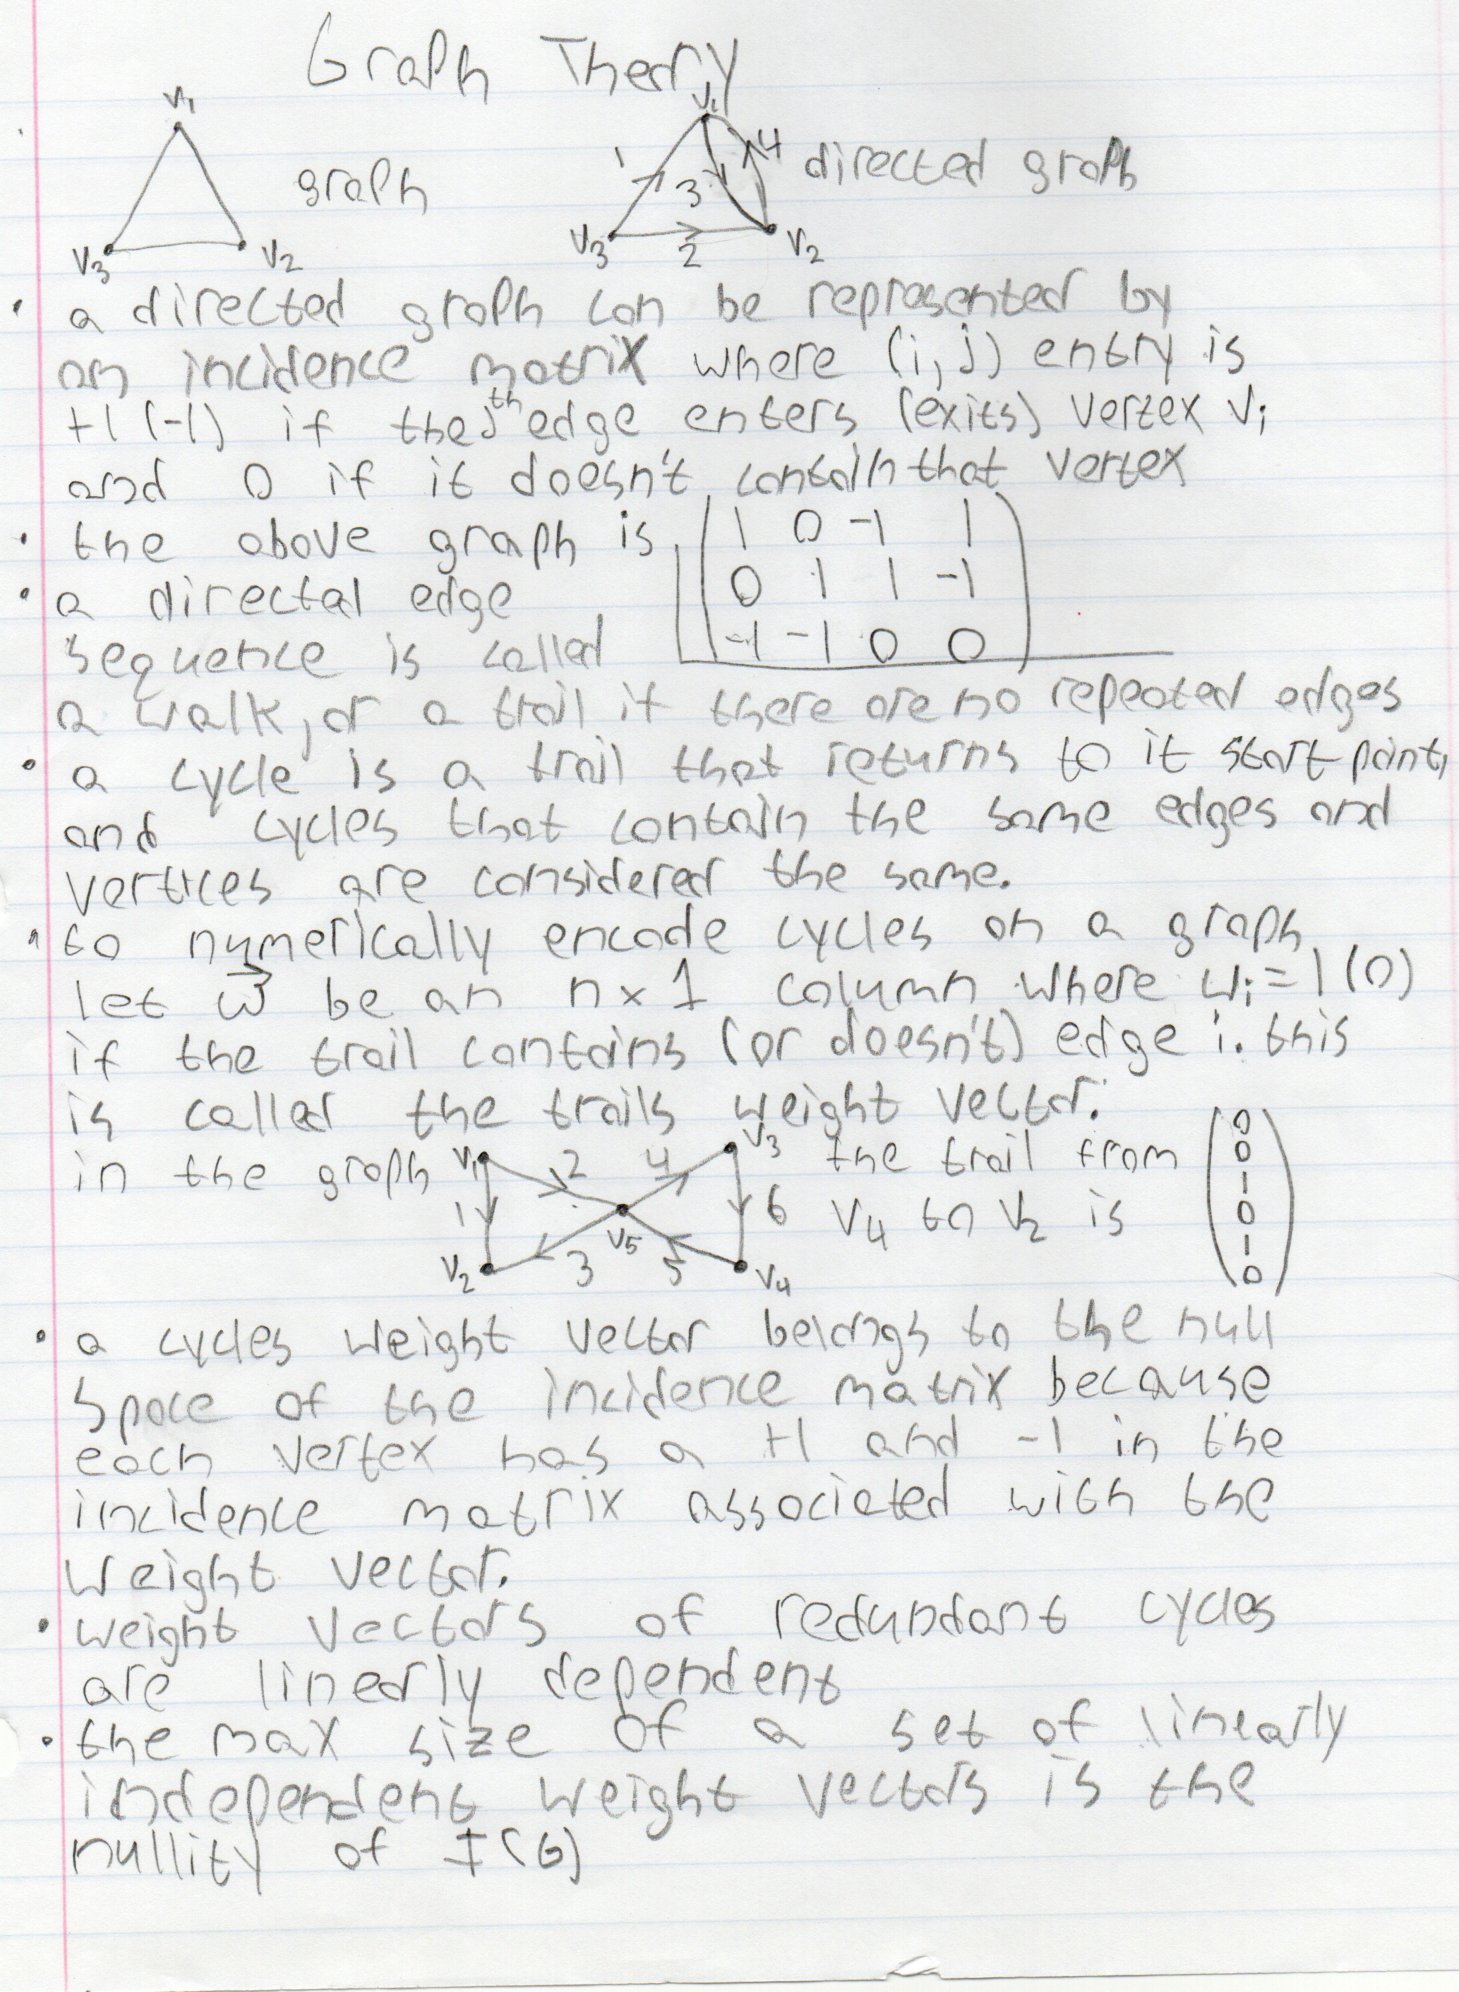 Graph Theory
V1
graph
V3 V2
V1
1 3 4
directed graph
V3 2 V2
• a directed graph can be represented by
an incidence matrix where (i,j) entry is
+1 (-1) if the jth edge enters (exits) vertex Vi
and 0 if it doesn't contain that vertex
• the above graph is
1 0 -1 1
0 1 1 -1
-1 -1 0 0
• a directal edge
sequence is called
a walk, or a trail if there are no repeated edges
• a cycle is a trail that returns to it start point,
and cycles that contain the same edges and
vertices are considered the same.
• to numerically encode cycles on a graph
let w⃗ be an n x 1 column where wi = 1 (0)
if the trail contains (or doesn't) edge i. this
is called the trails weight vector.
in the graph V1 2 4 V3 the trail from
1 V5 6 V4 to V2 is
V2 3 5 V4
0
0
1
0
1
0
• a cycles weight vector belongs to the null
space of the incidence matrix because
each vertex has a +1 and -1 in the
incidence matrix associated with the
weight vector.
• weight vectors of redundant cycles
are linearly dependent
• the max size of a set of linearly
independent weight vectors is the
nullity of I(G)